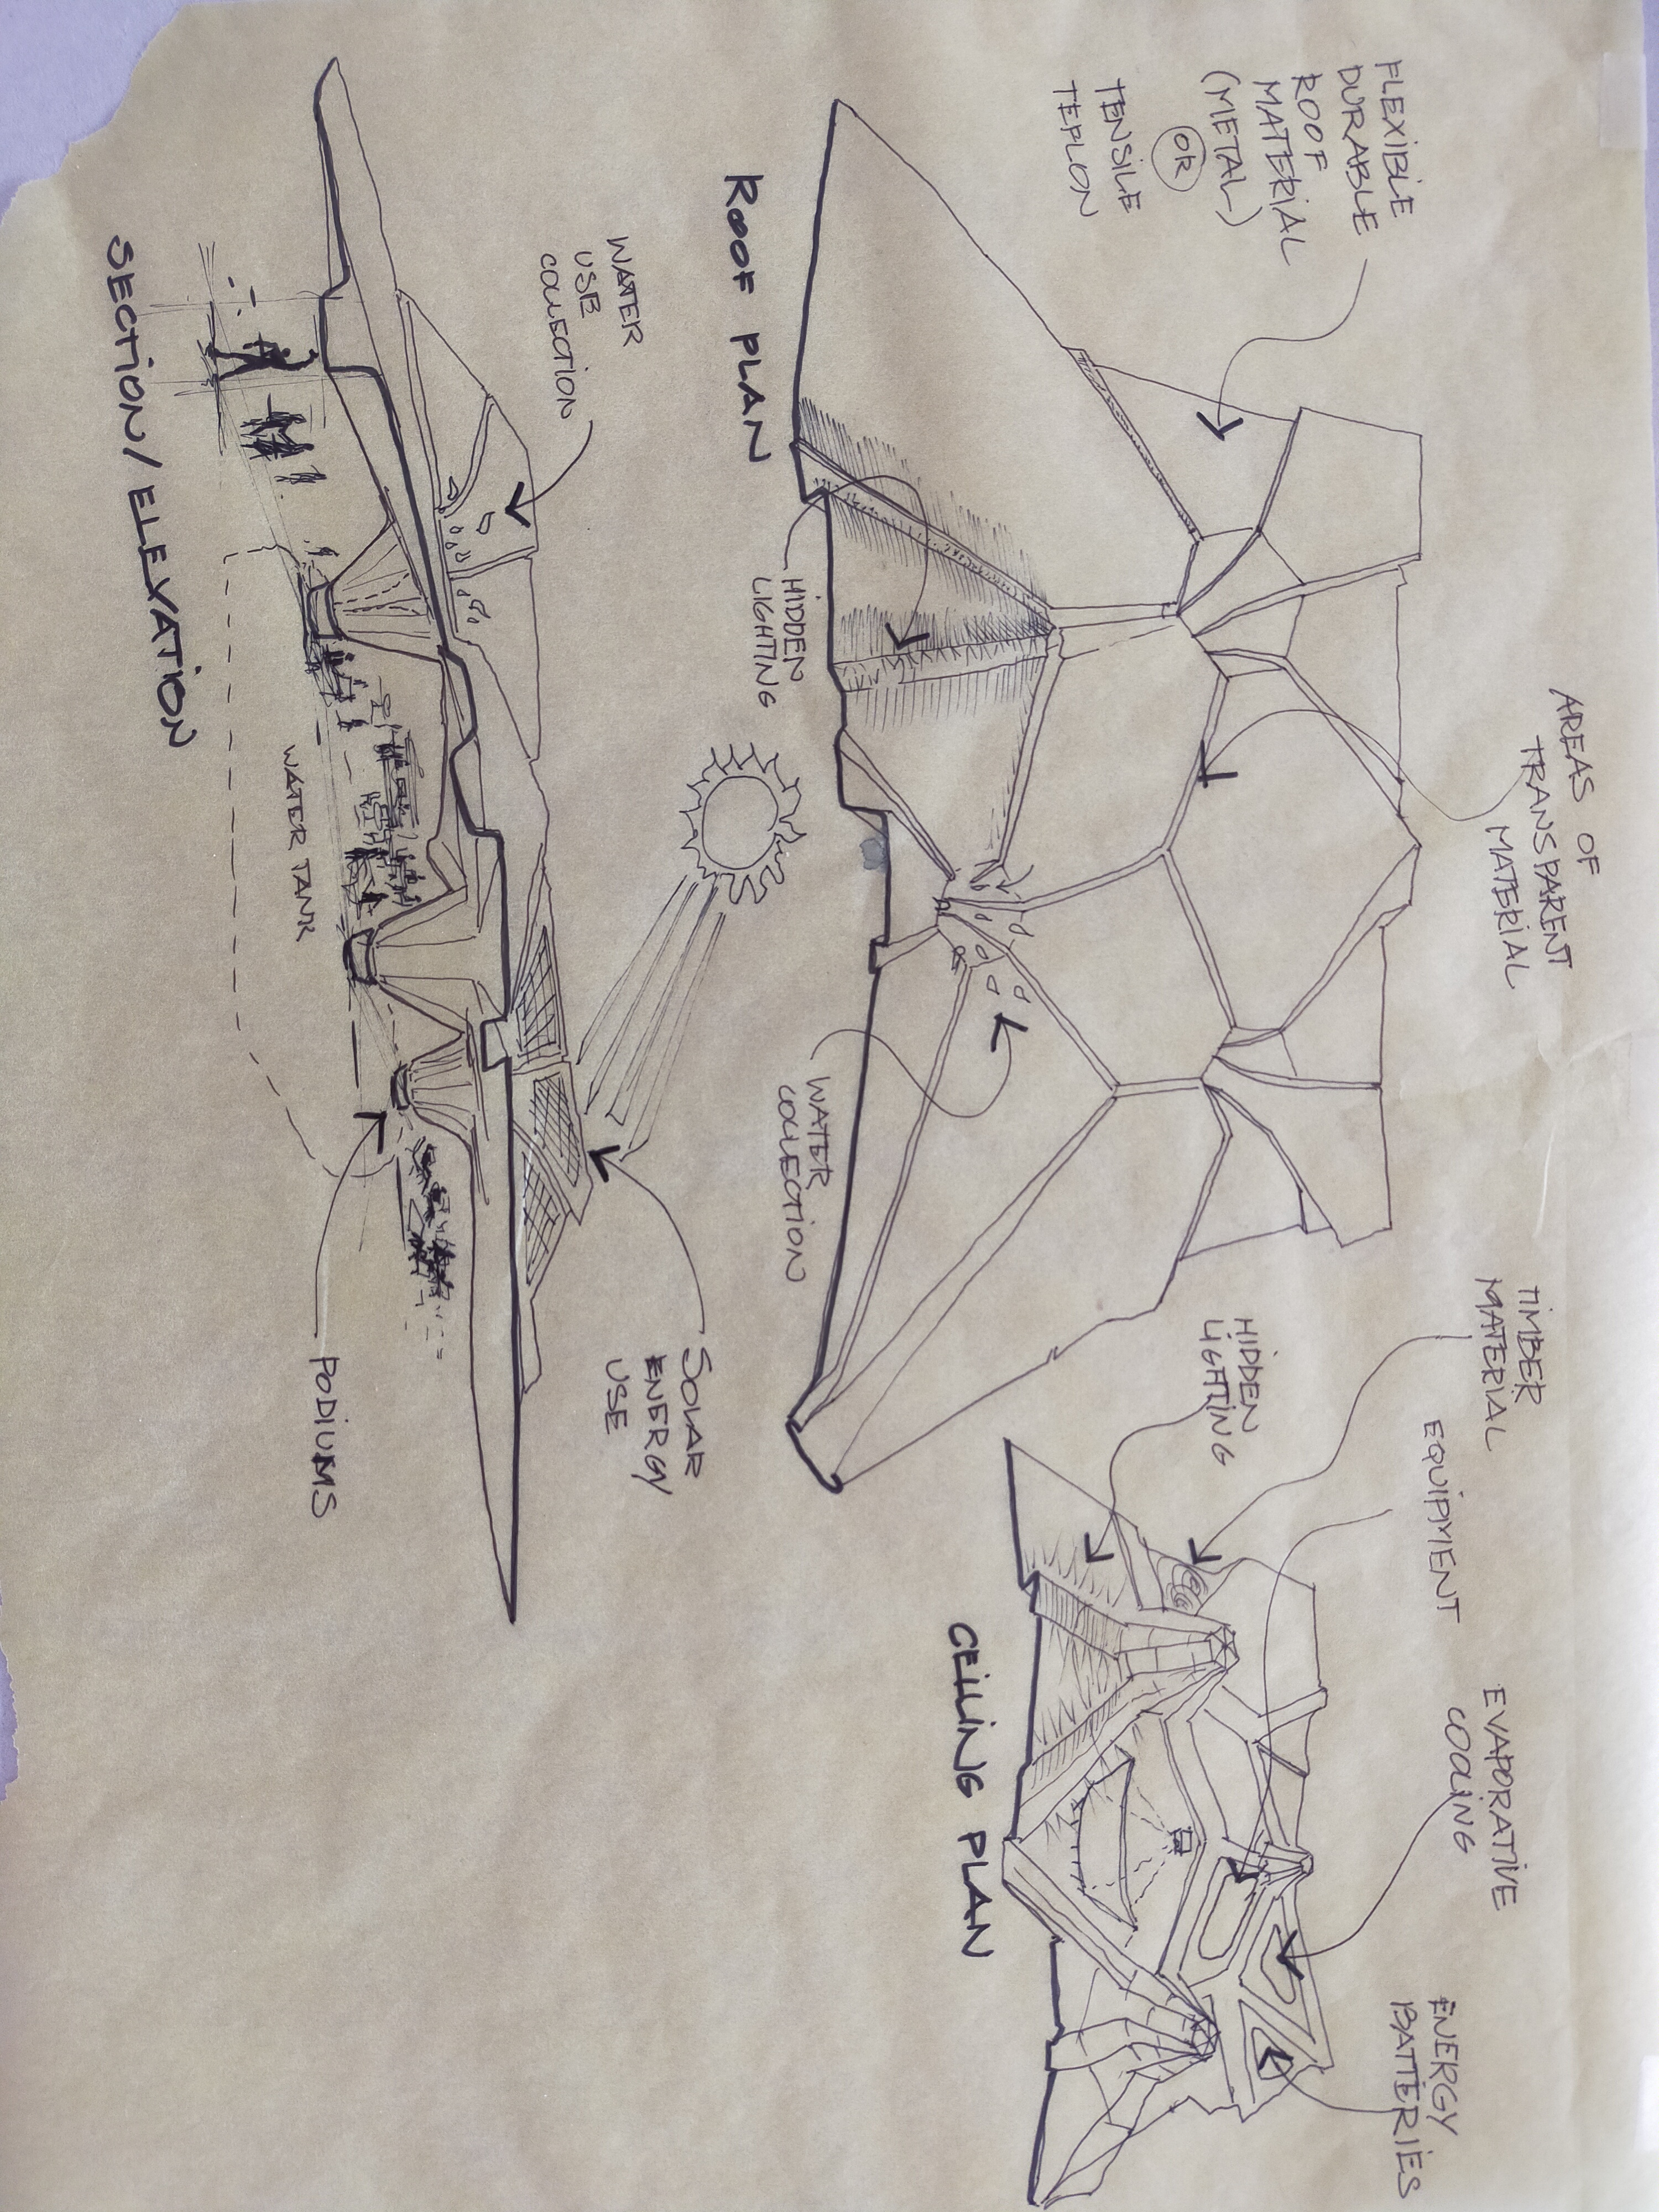 FLEXIBLE
DURABLE
ROOF
MATERIAL
(METAL)
OR
TENSILE
TEFLON
AREAS OF
TRANSPARENT
MATERIAL
ROOF PLAN
HIDDEN
LIGHTING
WATER
COLLECTION
TIMBER
MATERIAL
HIDDEN
LIGHTING
EQUIPMENT
EVAPORATIVE
COOLING
ENERGY
BATTERIES
CEILING PLAN
WATER
USE
COLLECTION
SOLAR
ENERGY
USE
WATER TANK
PODIUMS
SECTION/ELEVATION